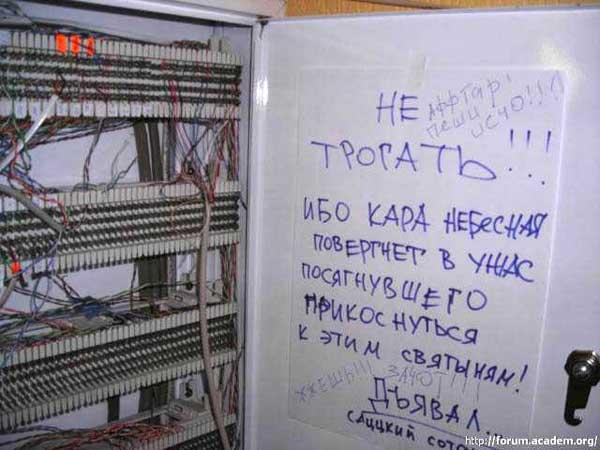 НЕ
АФФТАР!
ПЕШИ
ИСЧО!!!
ТРОГАТЬ!!!
ИБО КАРА НЕБЕСНАЯ
ПОВЕРГНЕТ В УЖАС
ПОСЯГНУВШЕГО
ПРИКОСНУТЬСЯ
К ЭТИМ СВЯТЫНЯМ!
ЖЖЕШЬ!!! ЗАЧОТ!!!
ДЪЯВАЛ...
САЦЦКИЙ
http://forum.academ.org/